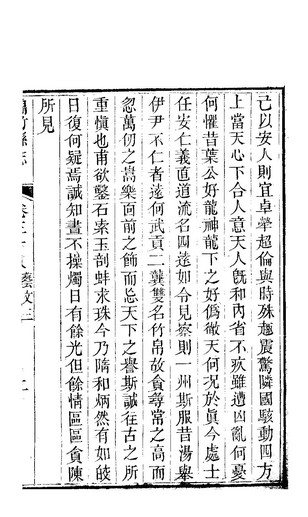 己以安人則宜卓犖超倫與時殊趣震驚隣國駭動四方
上當天心下合人意天人旣和內省不疚雖遭凶亂何憂
何懼昔葉公好龍神龍下之好僞徹天何況於眞今處士
任安仁義直道流名四遠如令見察則一州斯服昔湯舉
伊尹不仁者遠何武貢二龔雙名竹帛故貪尋常之高而
忽萬仞之嵩樂面前之飾而忘天下之譽斯誠往古之所
重愼也甫欲鑿石索玉剖蚌求珠今乃隋和炳然有如皎
日復何疑焉誠知晝不操燭日有餘光但餘情區區貪陳
所見
竹縣志 卷三十八 藝文三